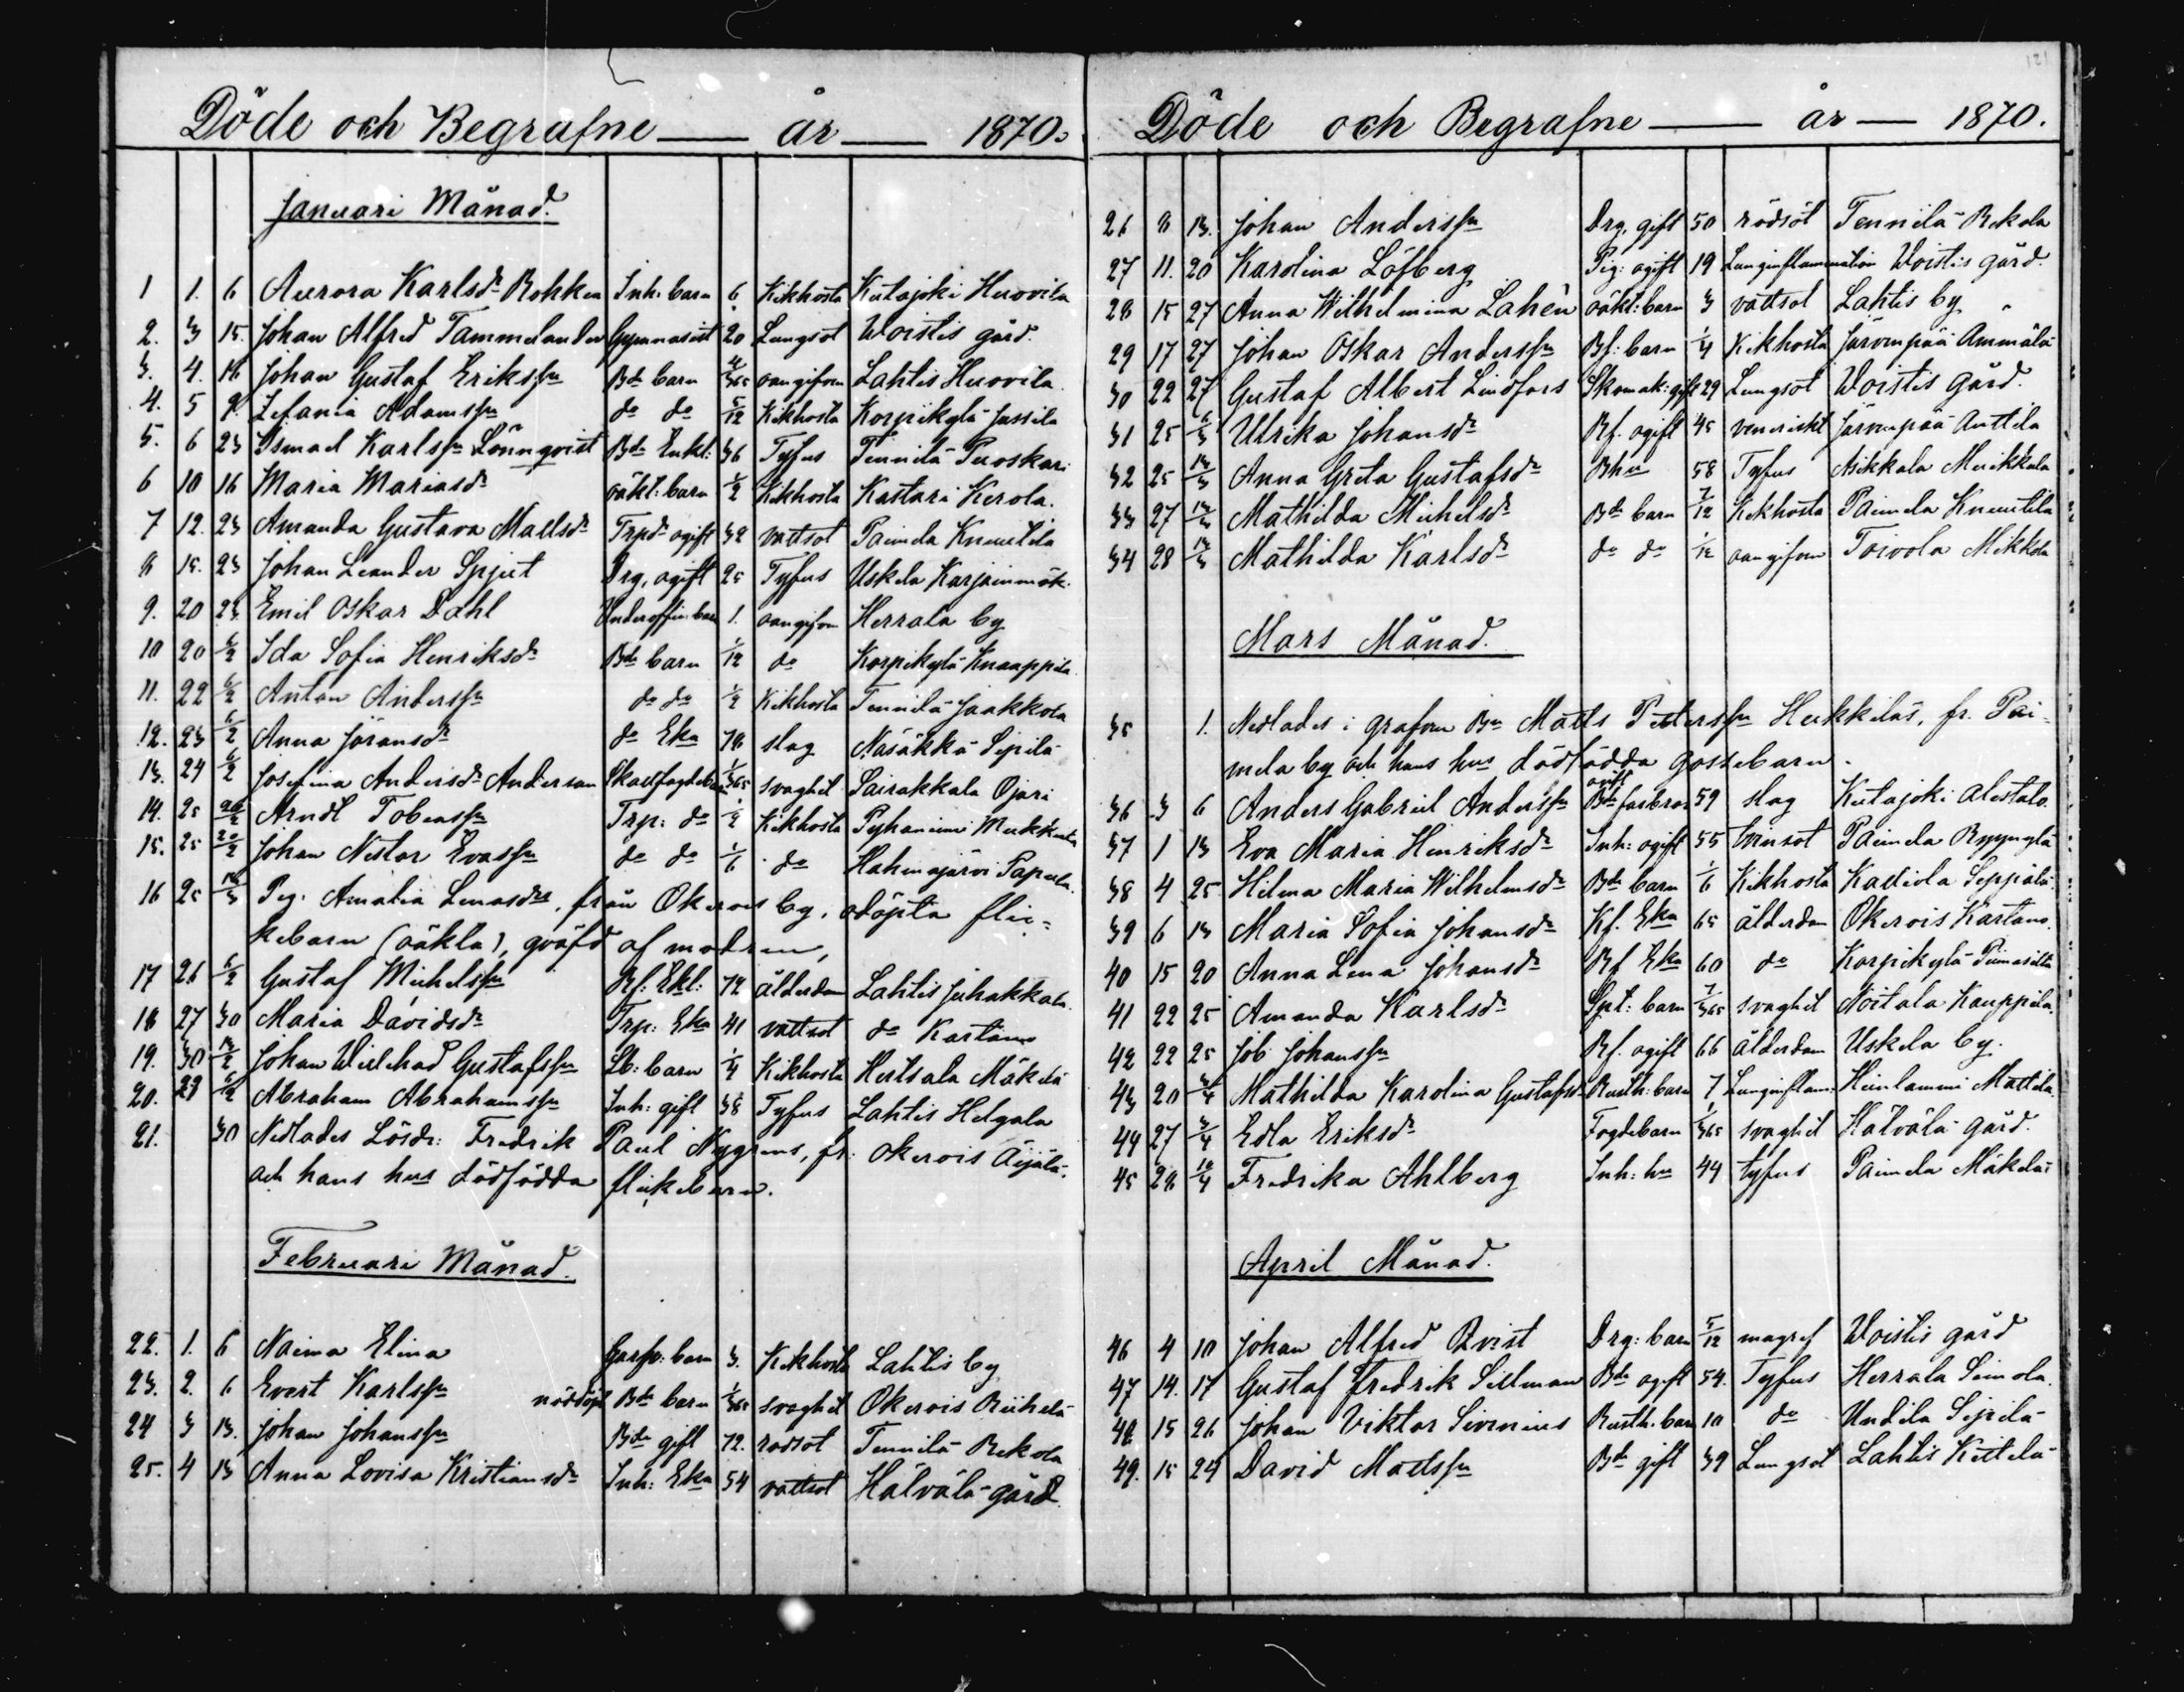 121
Döde och Begrafne — år — 1870.
Januari Månad.
1 1. 6 Aurora Karlsdr Rokken Inh. barn 6 Kikhosta Kutajoki Huovila
2. 3 15. Johan Alfred Tammelander Gymnasist 20 Lungsot Woistis gård.
3. 4. 16 Johan Gustaf Erikssn Bde barn 4/365 oangifven Lahtis Huovila
4. 5 9. Zefania Adamssn do do 5/12 Kikhosta Korpikylä Jussila
5. 6 23 Ismael Karlssn Lönnqvist Bde Enkl: 36 Tyfus Tennilä Puoskari
6 10 16 Maria Mariasdr oäkt: barn 1/2 Kikhosta Kastari Kerola.
7 12. 23 Amanda Gustava Mattsdr Trpdr ogift 32 vattsot Paimela Knuutila
8 15. 23 Johan Leander Spjut Drg, ogift 25 Tyfus Uskela Karjainmäk.
9. 20 23 Emil Oskar Dahl Underoffir. barn 1. oangifven Herrala by
10 20 6/2 Ida Sofia Henriksdr Bde barn 1/12 do Korpikylä Knaappila
11. 22 6/2 Anton Anderssn do do 1/2 Kikhosta Tennilä Jaakkola
12. 23 6/2 Anna Göransdr do Eka 78 slag Nasäkkä Sipilä
13. 24 6/2 Josefina Andersdr Anderson 1/365 svaghet Sairakkala Ojari
14. 25 20/2 Arndt Tobiassn Trp: do 1/2 Kikhosta Pyhäniemi
15. 25 20/2 Johan Nestor Evassn do do 1/6 do Hahmajärvi Papula.
16 25 13/3 Pig. Amalia Lenasdrs, från Okerois by, odöpta flic-
kebarn (oäkta), qväfd af modren,
17 26 6/2 Gustaf Michelssn Bf: Ekl: 72 ålderdom Lahtis Juhakkala
18 27 30 Maria Davidsdr Trp: Eka 41 vattsot do Kartano
19. 30 13/2 Johan Willehad Gustafssn Lb: barn 1/4 Kikhosta Heitsala Mäkelä
20. 29 6/2 Abraham Abrahamssn Inh: gift 38 Tyfus Lahtis Helgala
21. 30 Nedlades Lösdr: Fredrik Paul Nygrens, fr: Okerois Äijälä,
och hans hus dödfödda flickebarn.
Februari Månad.
22. 1. 6 Naima Elina barn 3. Kikhosta Lahtis by
23. 2. 6 Evert Karlssn nöddöpt Bde barn 1/365 svaghet Okerois Riihelä
24 3 13. Johan Johanssn Bde gift 72. rödsot Tennilä Rekola
25. 4 13 Anna Lovisa Kristiansdr Inh: Eka 54 vattsot Hälvälä gård
Döde och Begrafne — år — 1870.
26 8 13. Johan Anderssn Drg, gift 50 rödsot Tennilä Rekola
27 11. 20 Karolina Löfberg Pig: ogift 19 Lunginflammation Woistis gård.
28 15 27 Anna Wilhelmina Lahén oäkt: barn 3 vattsot Lahtis by
29 17 27 Johan Oskar Anderssn Bf: barn 1/4 Kikhosta Järvenpää Ammälä
30 22 27 Gustaf Albert Lindfors Skomak: gift 29 Lungsot Woistis gård.
31 25 6/3 Ulrika Johansdr Bf. ogift 45 veneriskt Järvenpää Anttila
32 25 13/3 Anna Greta Gustafsdr Bhu 58 Tyfus Asikkala Muikkula
33 27 13/3 Mathilda Michelsdr Bde barn 7/12 Kikhosta Paimela Knuutila
34 28 13/3 Mathilda Karlsdr do do 1/12 oangifven Toivola Mikkola
Mars Månad.
35 1. Nedlades i grafven Bn Matts Petterssn Heikkiläs, fr. Pai-
mela by och hans hus dödfödda gossebarn.
36 3 6 Anders Gabriel Anderssn ogift Bde farbror 59 slag Kutajoki Alestalo.
37 1 13 Eva Maria Henriksdr Inh: ogift 55 Paimela
38 4 25. Hilma Maria Wilhelmsdr Bde barn 1/6 Kikhosta Kaliola Seppälä
39 6 13 Maria Sofia Johansdr Kf. Eka 65 ålderdom Okerois Kartano.
40 15 20 Anna Lena Johansdr Bf Eka 60 do Korpikylä
41 22 25 Amanda Karlsdr Spt: barn 7/365 svaghet Noitala Kauppila.
42 22 25 Job Johanssn Bf. ogift 66 ålderdom Uskela by.
43 20 3/4 Mathilda Karolina Gustafsdr Rusth: barn 7 Lunginflam: Heinlammi Mattila
44 27 3/4 Edla Eriksdr Fogdebarn 1/365 svaghet Hälvälä gård.
45 28 10/4 Fredrika Ahlberg Inh: hu 44 tyfus Paimela Mäkelä
April Månad.
46 4 10 Johan Alfred Qvist Drg: barn 5/12 magref Woistis gård
47 14. 17 Gustaf Fredrik Sillman Bde ogift 54. Tyfus Herrala Seimola.
48 15 26 Johan Viktor Sivenius Rusth. barn 10 do Undila Sipilä
49. 15 24 David Mattssn Bde gift 39 Lungsot Lahtis Kittelä